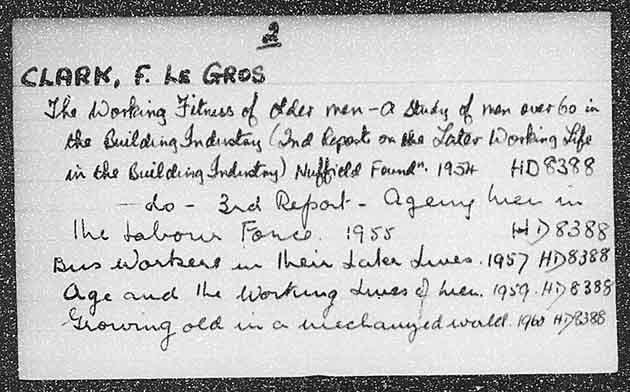 2
CLARK, F. LE GROS
The Working Fitness of older men - a study of men over 60 in
the Building Industry (2nd Report on the Later Working Life
in the Building Industry) Nuffield Foundn. 1954 HD8388
- do - 3rd Report - Ageing men in
the Labour Force. 1955 HD8388
Bus Workers in their Later Lives. 1957 HD8388
Age and the Working Lives of Men. 1959. HD8388
Growing old in a mechanized world. 1960 HD8388